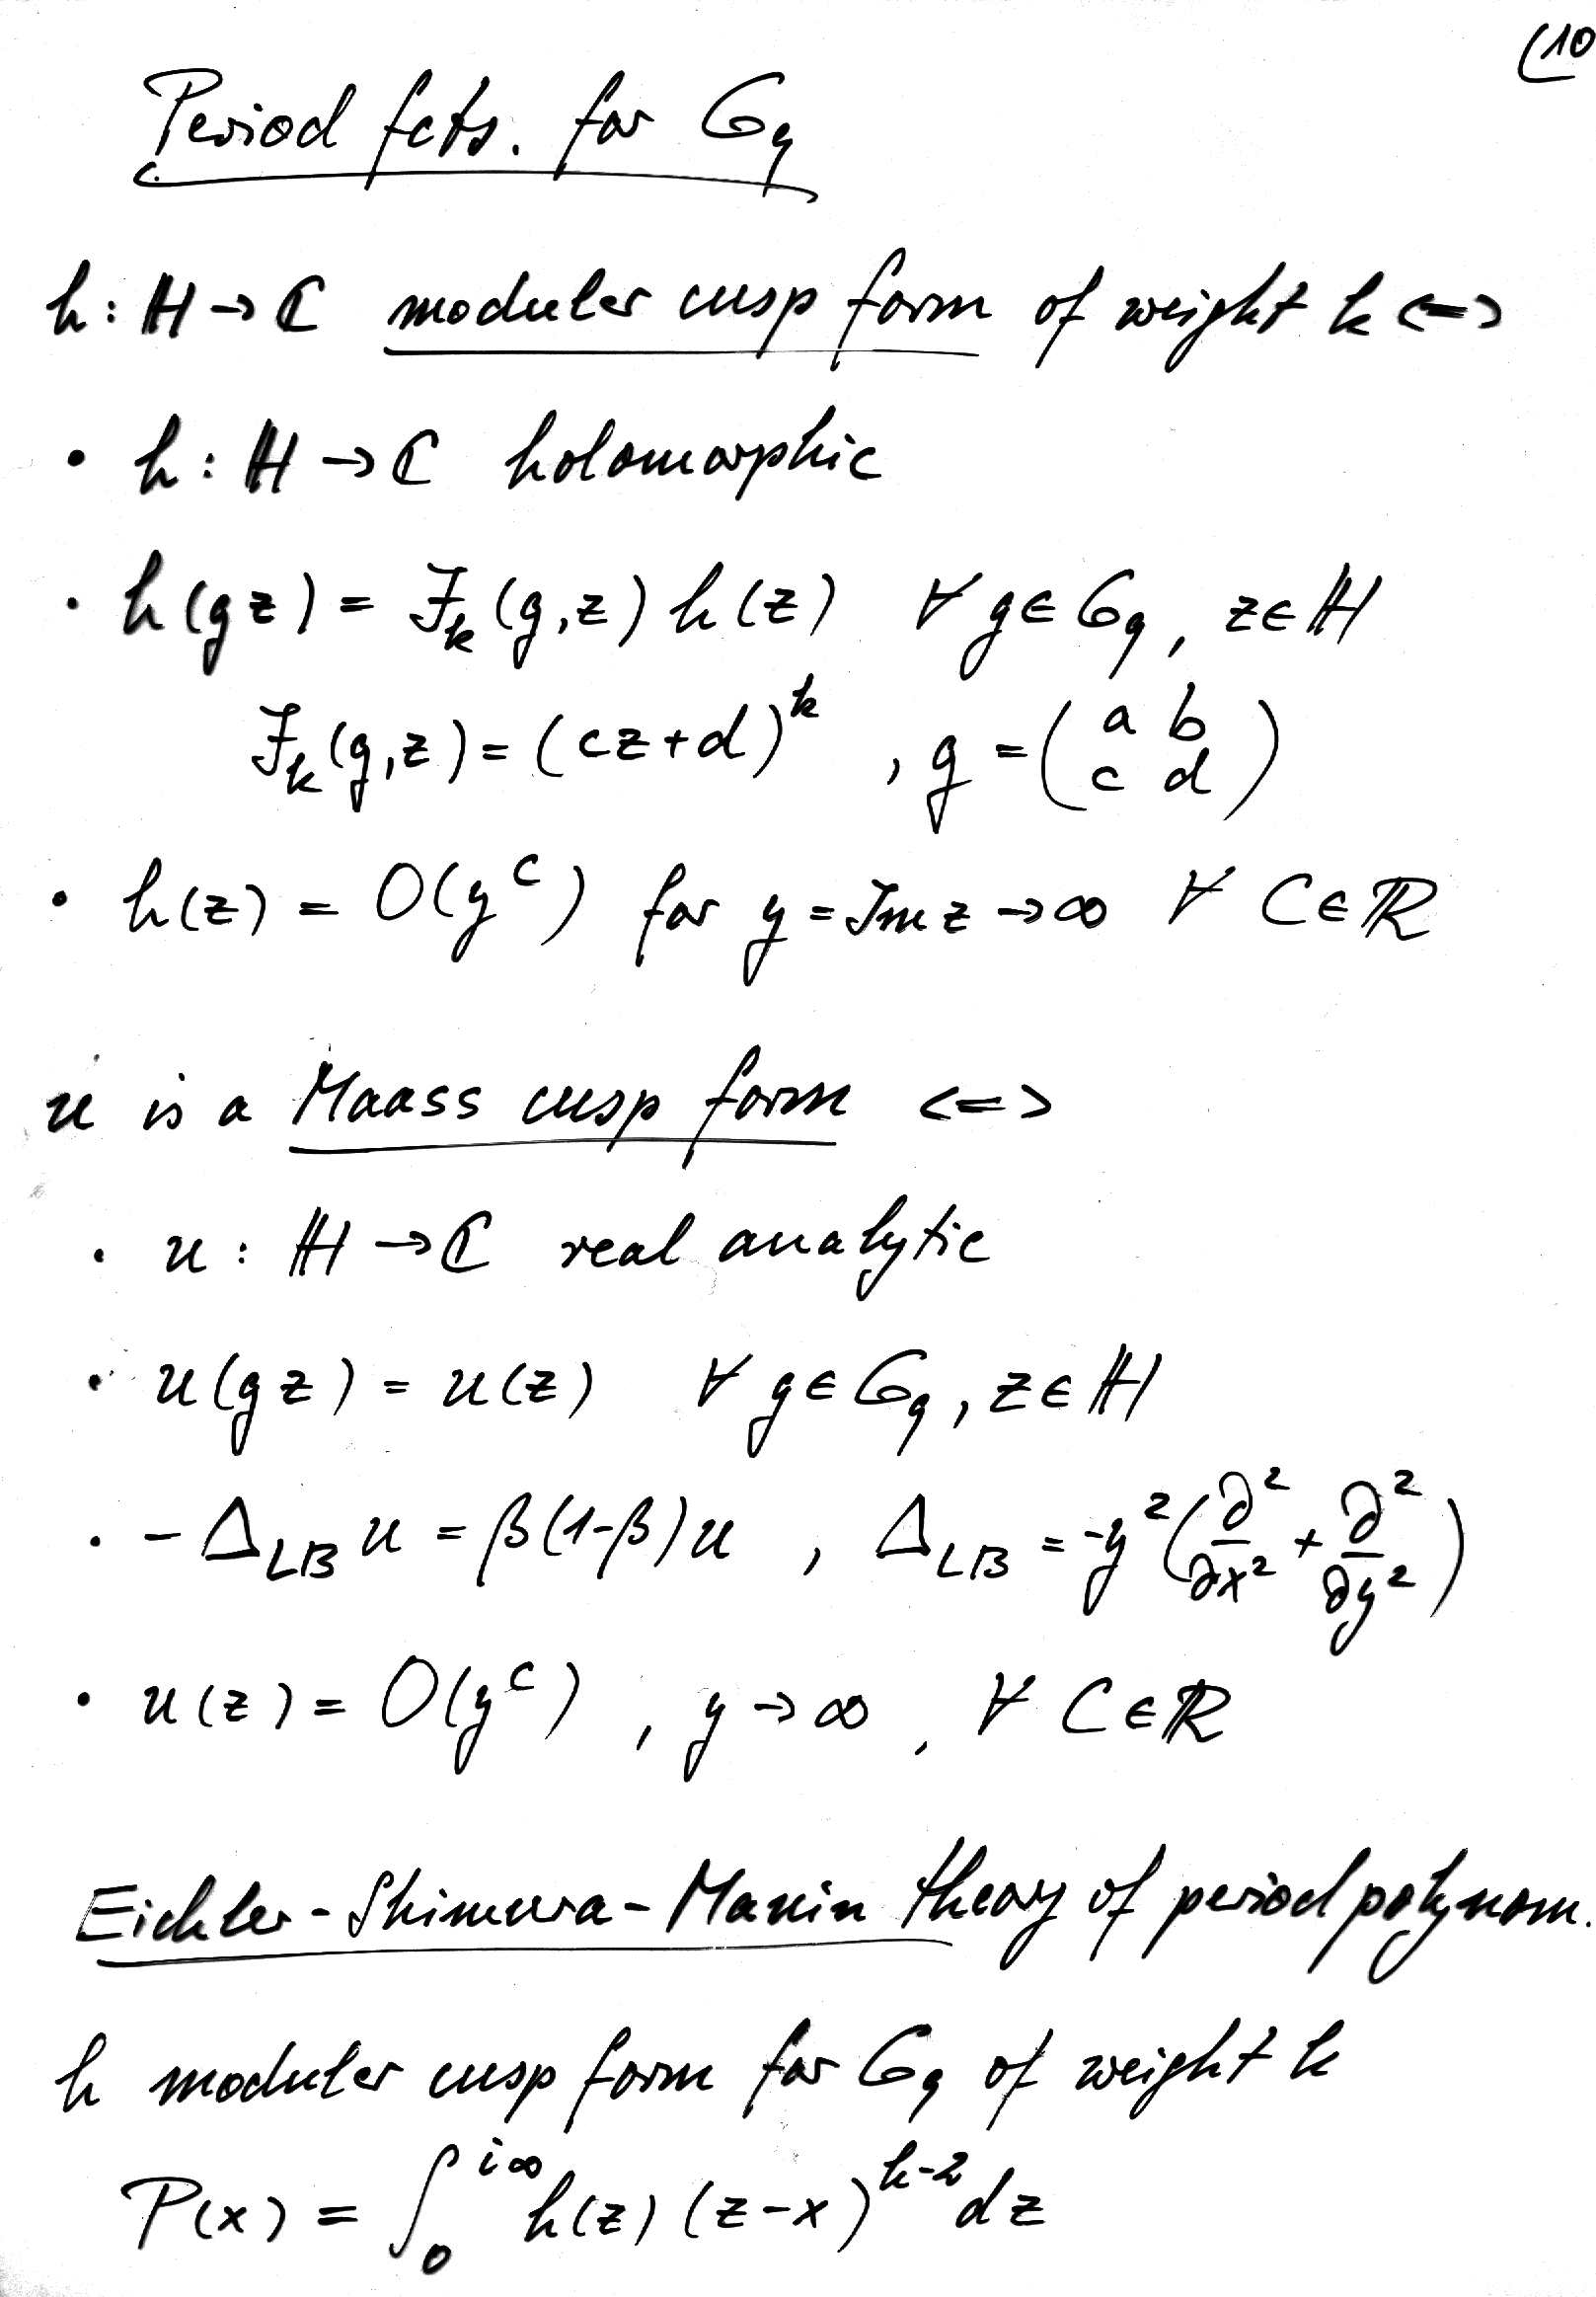 (10
Period fcts. for G_q
h: ℍ → ℂ modular cusp form of weight k <=>
• h: ℍ → ℂ holomorphic
• h(gz) = J_k(g,z) h(z) ∀ g ∈ G_q, z ∈ ℍ
J_k(g,z) = (cz+d)^k, g = (a b
c d)
• h(z) = O(y^C) for y = Im z → ∞ ∀ C ∈ ℝ
u is a Maass cusp form <=>
• u: ℍ → ℂ real analytic
• u(gz) = u(z) ∀ g ∈ G_q, z ∈ ℍ
• -Δ_LB u = β(1-β)u, Δ_LB = -y²(∂²/∂x² + ∂²/∂y²)
• u(z) = O(y^C), y → ∞, ∀ C ∈ ℝ
Eichler-Shimura-Manin theory of period polynom.
h modular cusp form for G_q of weight k
P(x) = ∫_0^{i∞} h(z) (z-x)^{k-2} dz